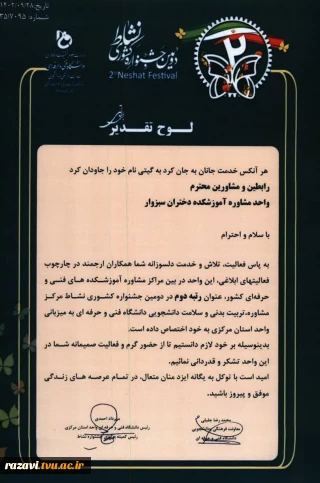 تاریخ:۱۴۰۲/۰۹/۲۸
شماره: ۳۵/۷۰۹۵
دومین جشنواره کشوری نشاط
2nd Neshat Festival
۲
لـوح تقدیـر
هر آنکس خدمت جانان به جان کرد به گیتی نام خود را جاودان کرد
رابطین و مشاورین محترم
واحد مشاوره آموزشکده دختران سبزوار
با سلام و احترام
به پاس فعالیت، تلاش و خدمت دلسوزانه شما همکاران ارجمند در چارچوب
فعالیتهای ابلاغی، این واحد در بین مراکز مشاوره آموزشکده های فنی و
حرفه‌ای کشور، عنوان رتبه دوم در دومین جشنواره کشوری نشاط مرکز
مشاوره،تربیت بدنی و سلامت دانشجویی دانشگاه فنی و حرفه ای به میزبانی
واحد استان مرکزی به خود اختصاص داده است.
بدینوسیله بر خود لازم دانستیم تا از حضور گرم و فعالیت صمیمانه شما در
این واحد تشکر و قدردانی نمائیم.
امید است با توکل به یگانه ایزد منان متعال، در تمام عرصه های زندگی
موفق و پیروز باشید.
محمد رضا جلیلی
معاونت فرهنگی و دانشجویی
دانشگاه فنی و حرفه ای
مهرداد احمدی
رئیس دانشگاه فنی و حرفه ای واحد استان مرکزی
رئیس کمیته جشنواره نشاط
razavi.tvu.ac.ir